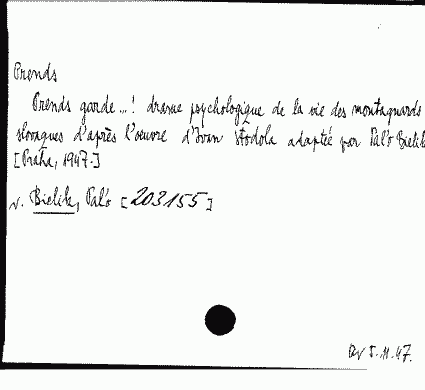 Prends
Prends garde...! drame psychologique de la vie des montagnards
slovaques d'après l'oeuvre d'Ivan Stodola adaptée par Pal'o Bielik
[Praha, 1947.]
v. Bielik, Pal'o [203155]
5.11.47.